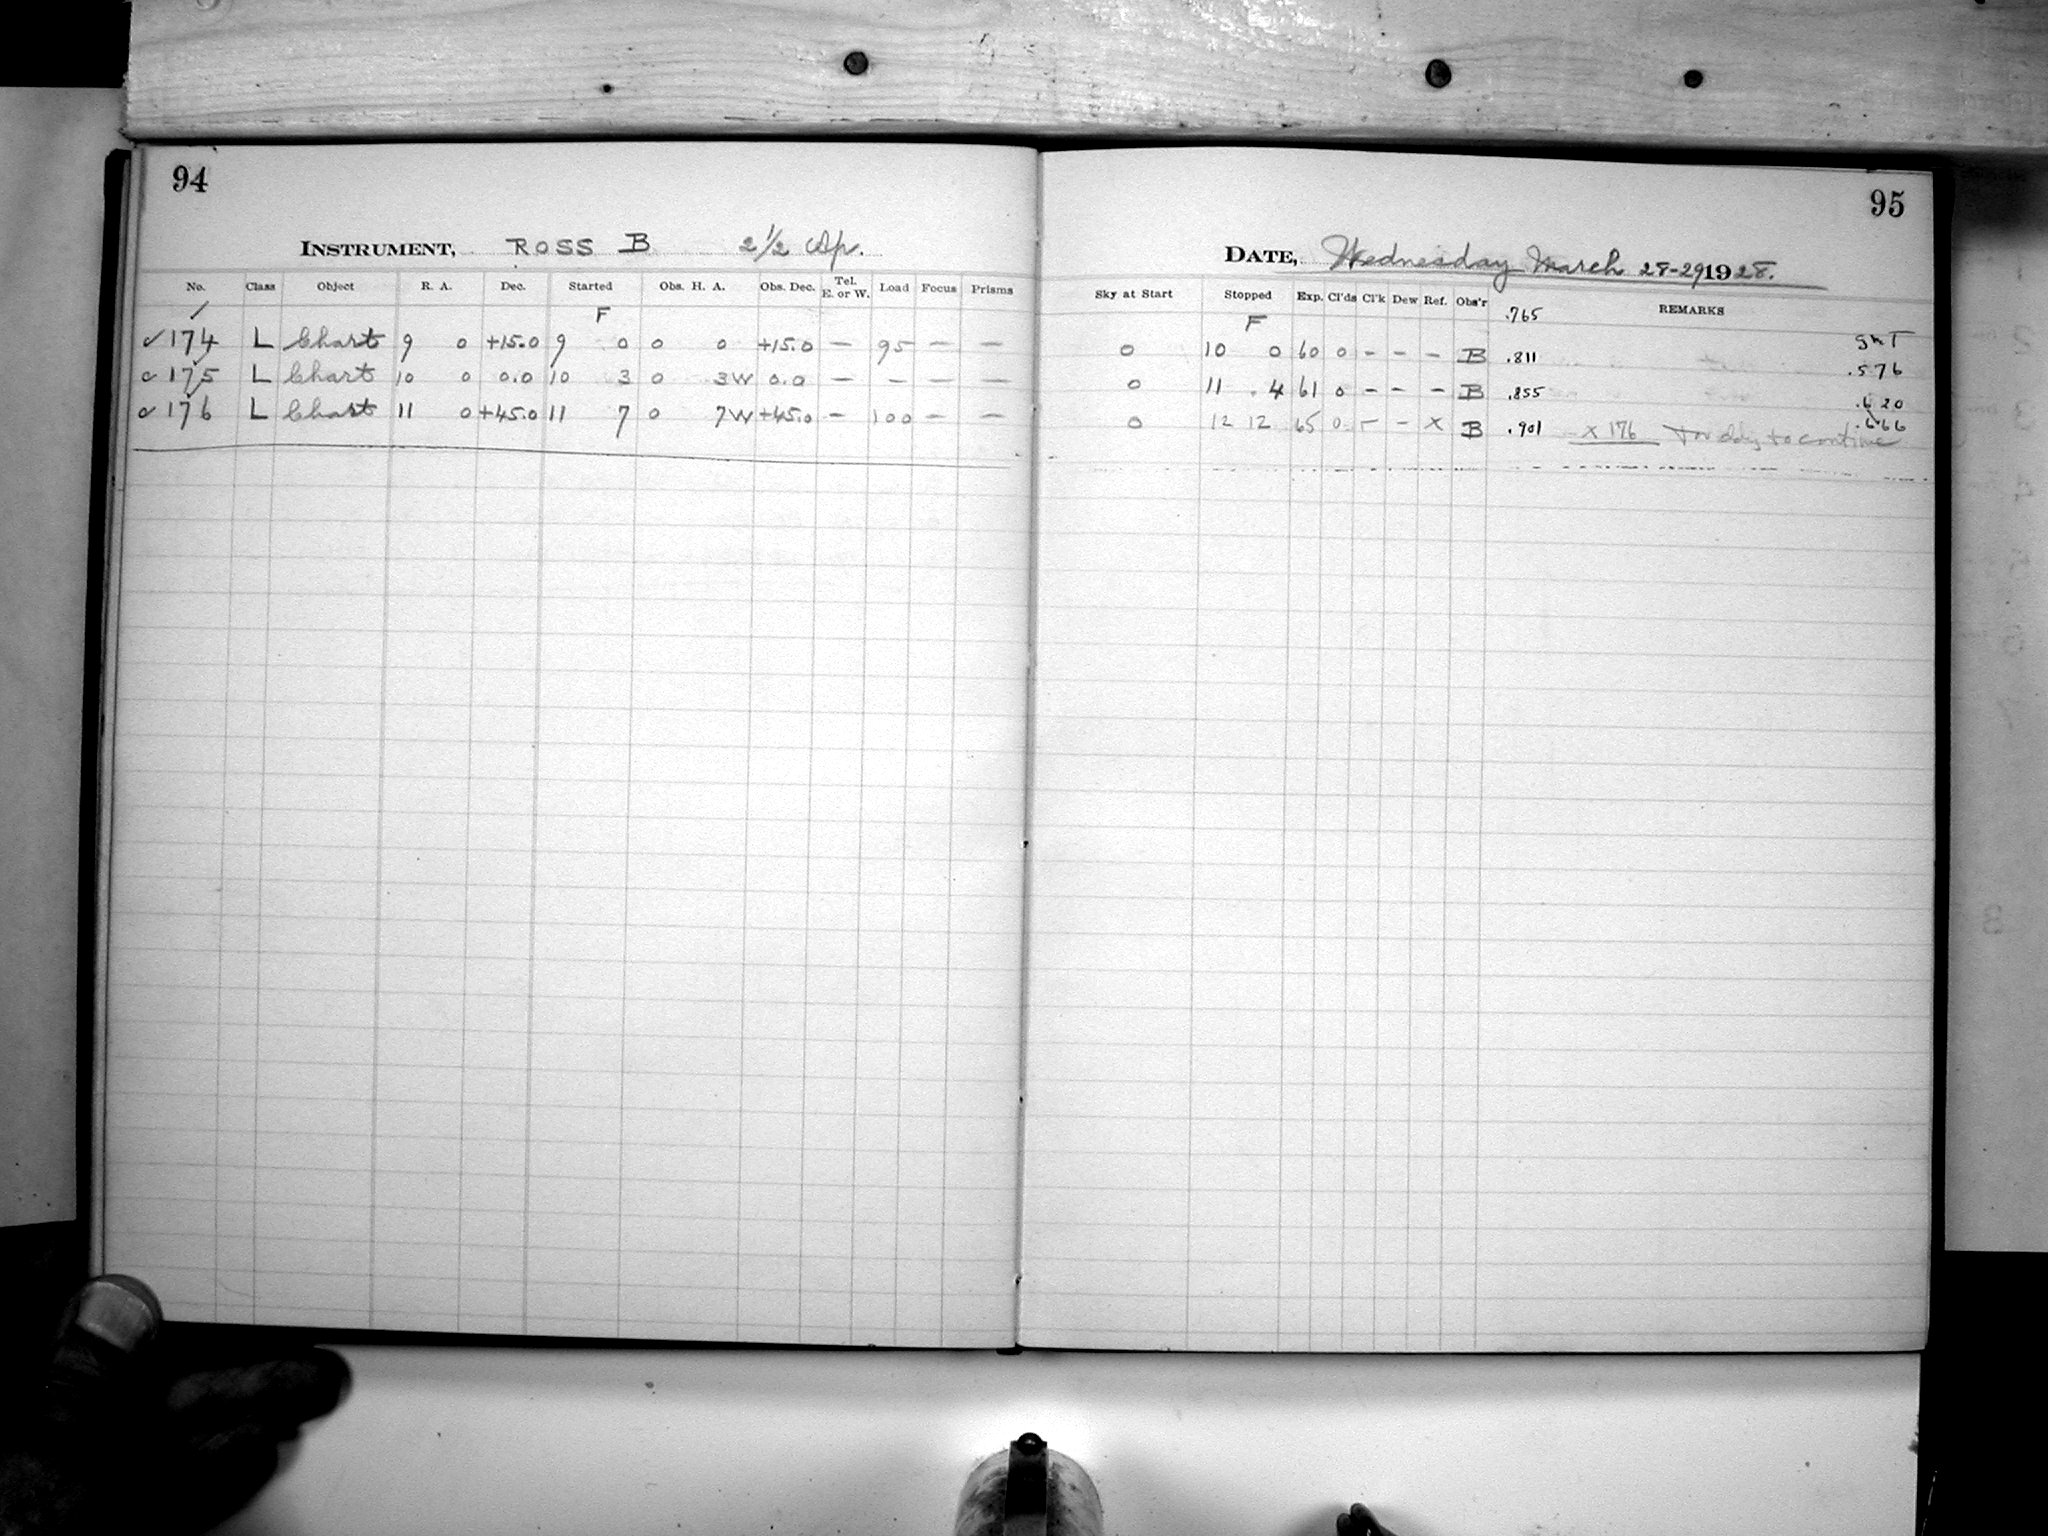 94
INSTRUMENT, ROSS B 2 1/2 Ap.
No. Class Object R. A. Dec. Started Obs. H. A. Obs. Dec. Tel. E. or W. Load Focus Prisms
F
✓174 L Chart 9 0 +15.0 9 0 0 0 +15.0 — 95 — —
✓175 L Chart 10 0 0.0 10 3 0 3W 0.0 — — — —
✓176 L Chart 11 0 +45.0 11 7 0 7W +45.0 — 100 — —
95
DATE, Wednesday March 28-29 1928.
Sky at Start Stopped Exp. Cl'ds Cl'k Dew Ref. Obs'r REMARKS
F .765
0 10 0 60 0 – – – B .811 GMT .576
0 11 4 61 0 – – – B .855 .620
0 12 12 65 0 – – X B .901 X 176 Too dewy to continue .666